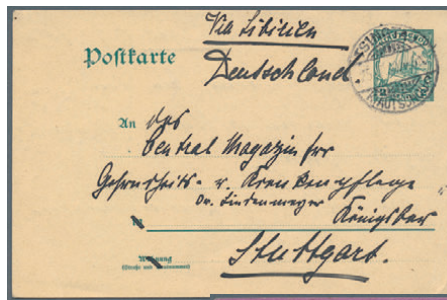 Via Sibirien
Postkarte
Deutschland
KIAUTSCHOU
An das
Central Magazin für
Gesundheits- u. Krankenpflege
Dr. Lindenmeyer
Königsbau
Stuttgart.
Wohnung
(Straße und Hausnummer)